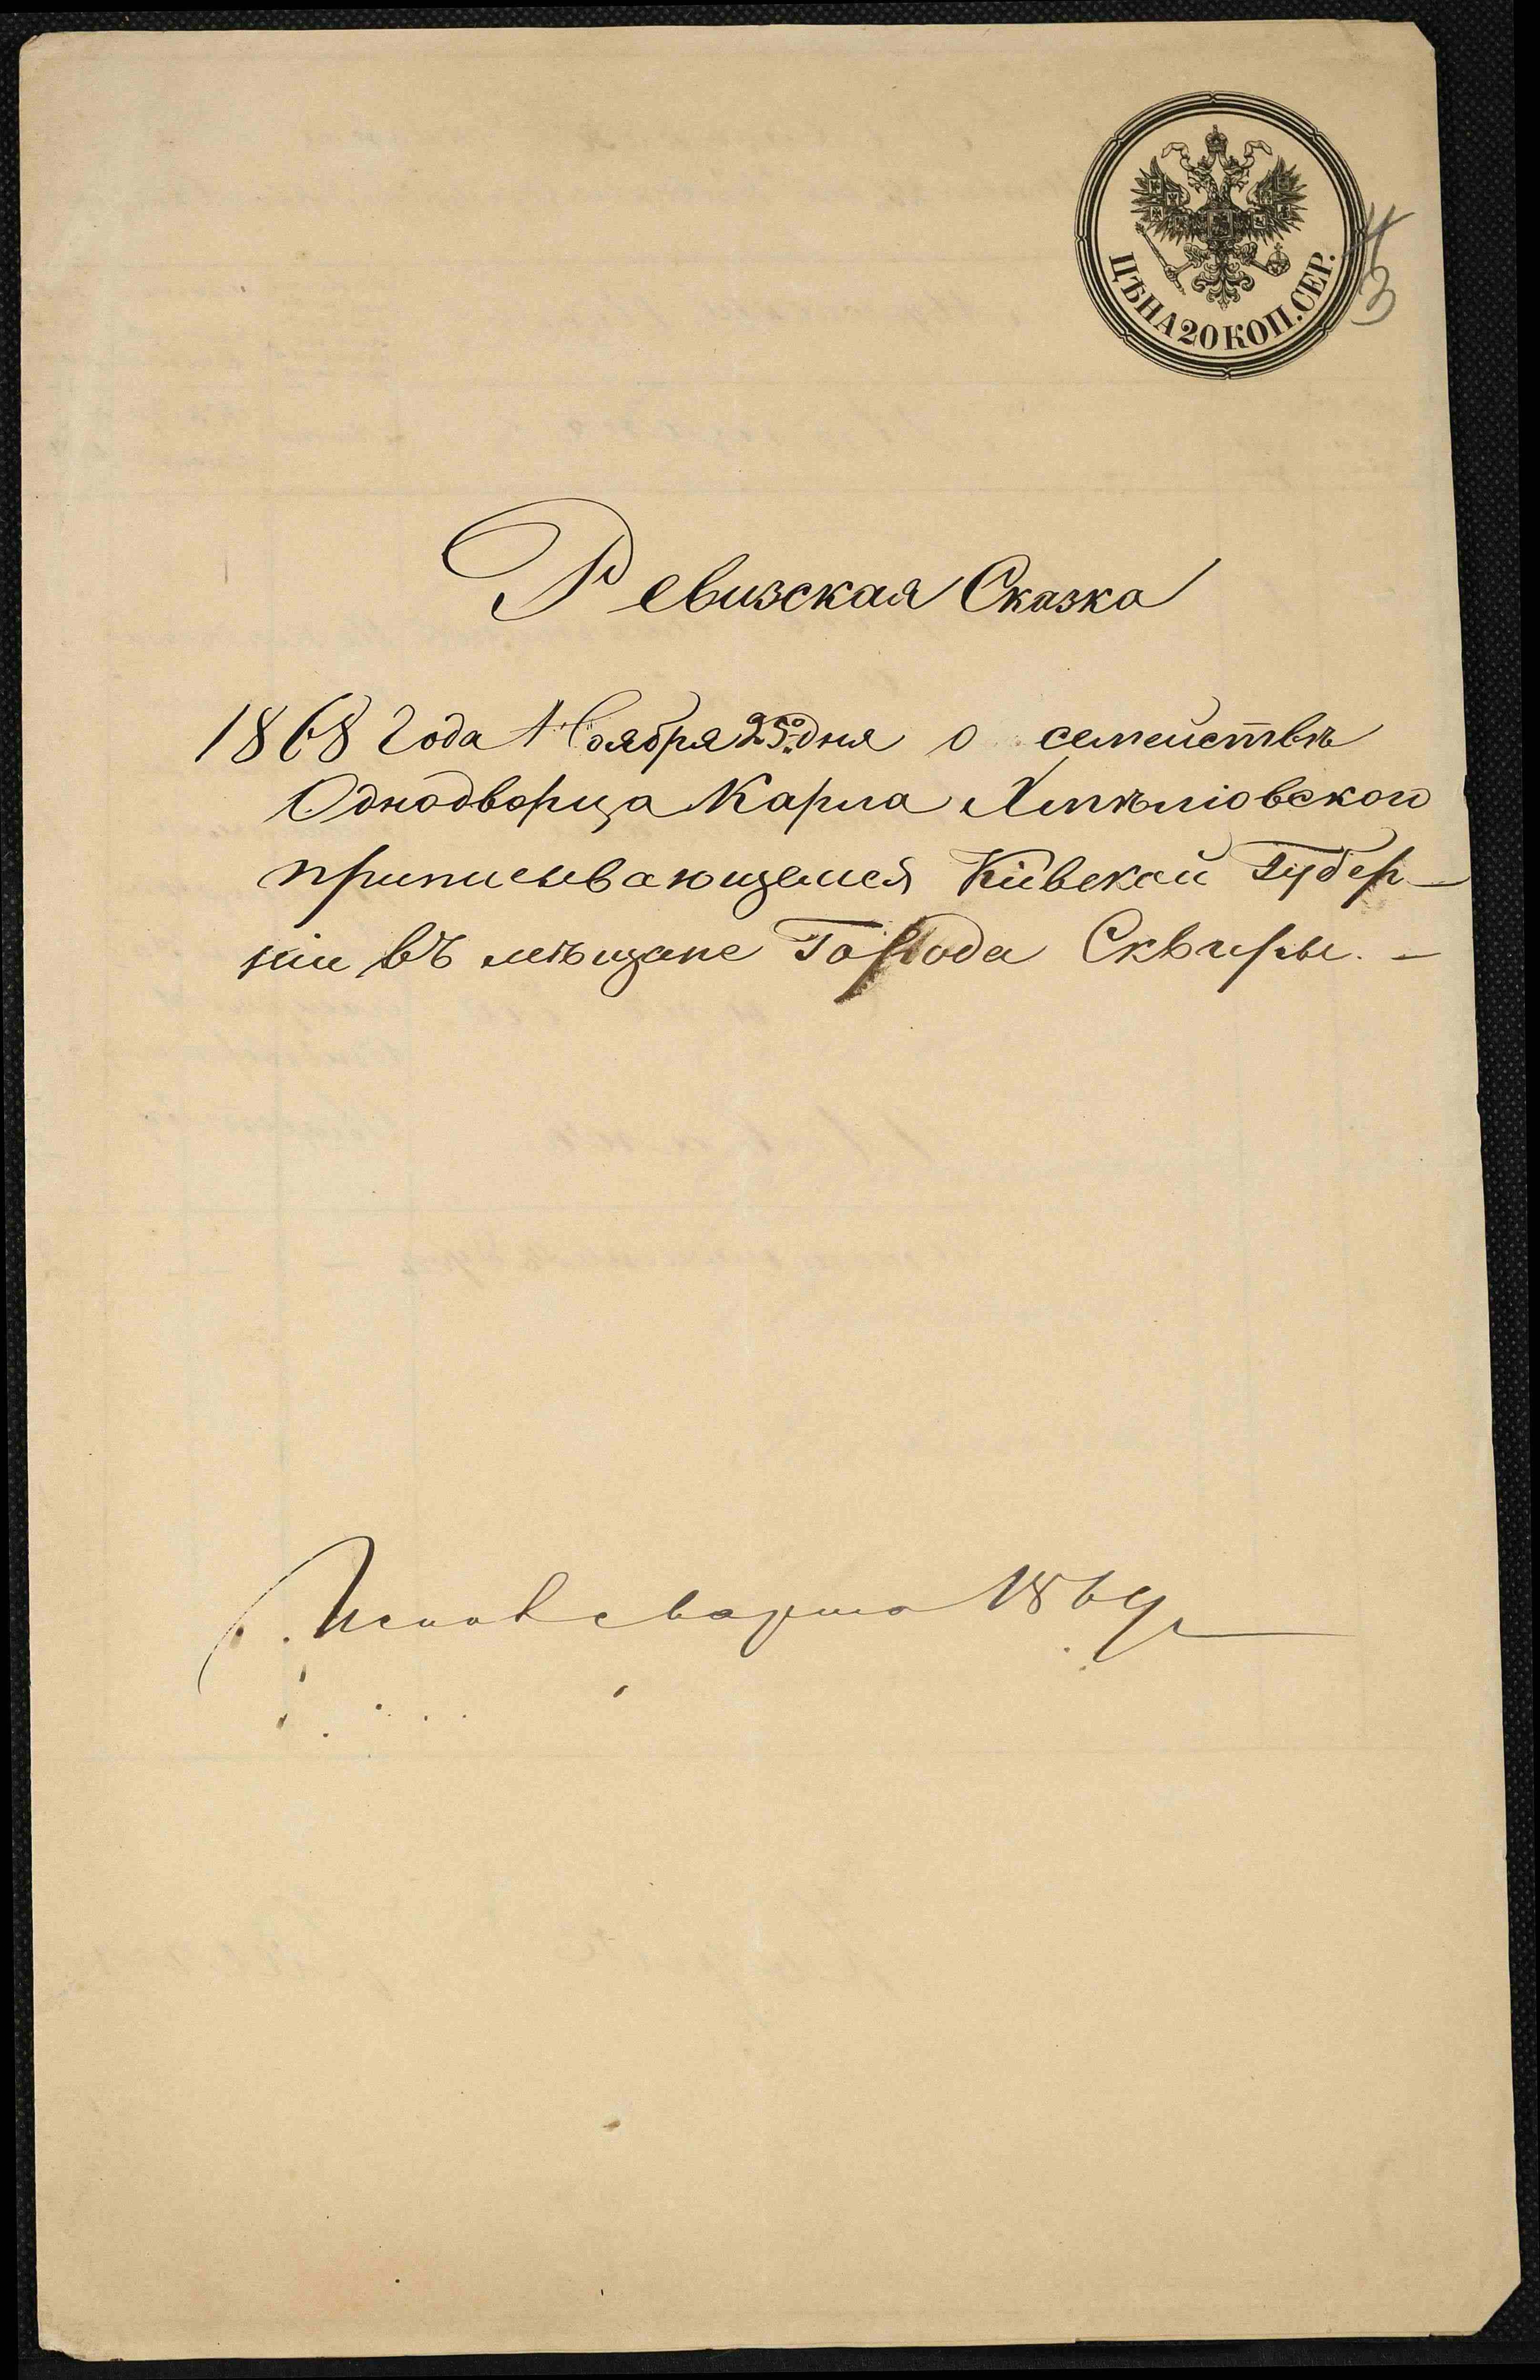 ЦѢНА 20 КОП. СЕР.
3
Ревизская Сказка
1868 года Ноября 25го дня о семействѣ
Однодворца Карла Хмѣлiовского
приписывающемся Кiевской Губер-
нiи въ мѣщане Города Сквиры. -
марта 1869 г